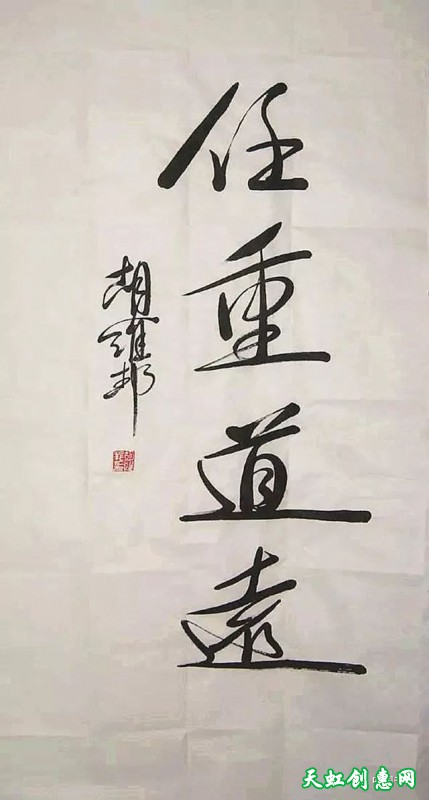 任重道遠
胡耀邦
天虹创惠网